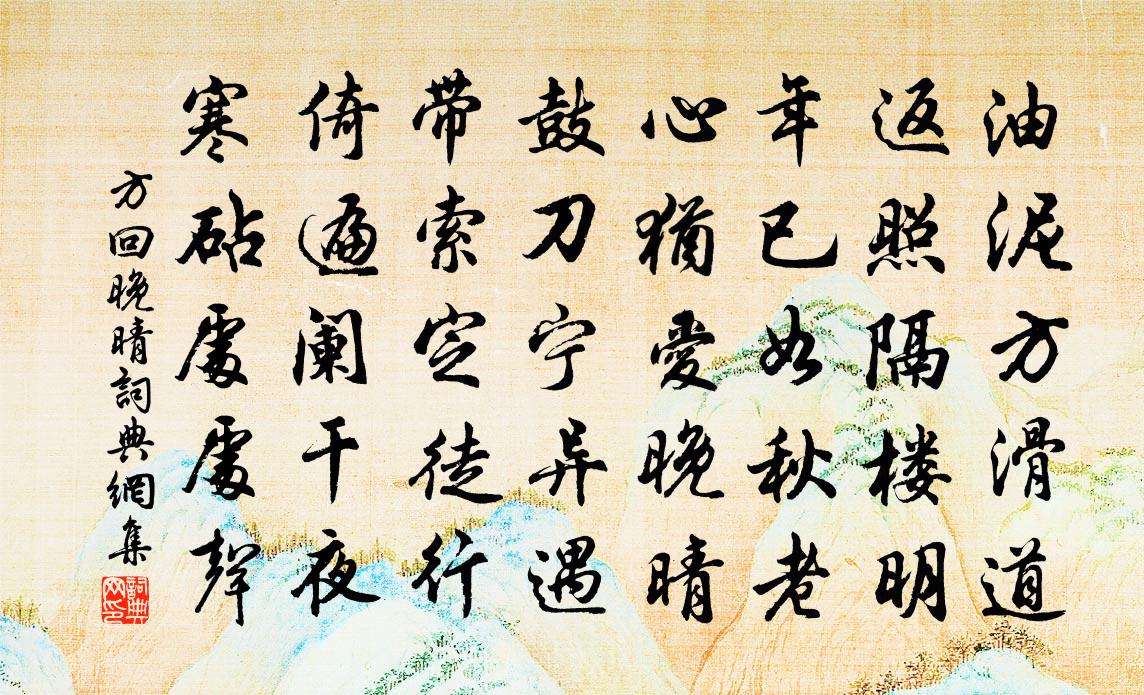 油泥方滑道
返照隔楼明
年已如秋老
心犹爱晚晴
鼓刀宁异遇
带索定徒行
倚遍阑干夜
寒砧處處聲
方回晚晴詞典網集
詞典網印